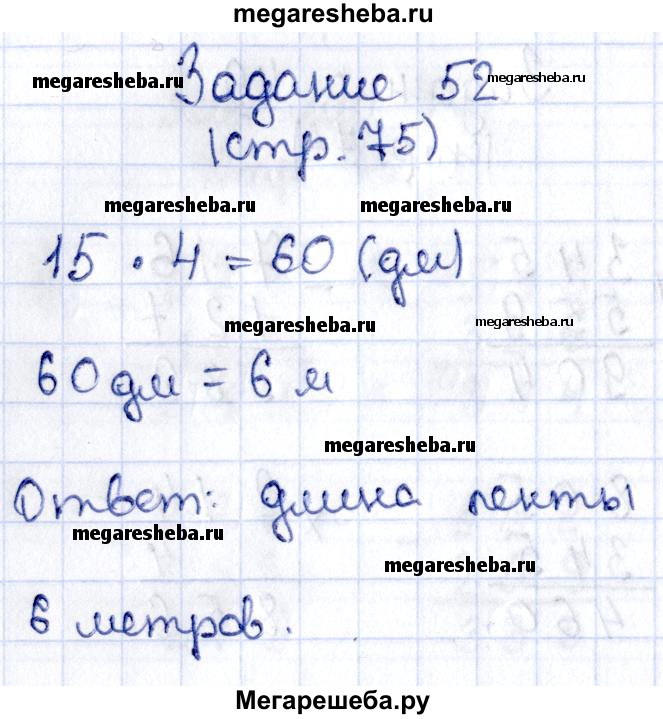 megaresheba.ru
Задание 52
megaresheba.ru megaresheba.ru
(стр. 75)
megaresheba.ru megaresheba.ru
15 · 4 = 60 (дм)
megaresheba.ru megaresheba.ru
60 дм = 6 м
megaresheba.ru
Ответ: длина ленты
megaresheba.ru
megaresheba.ru
6 метров.
Мегарешеба.ру